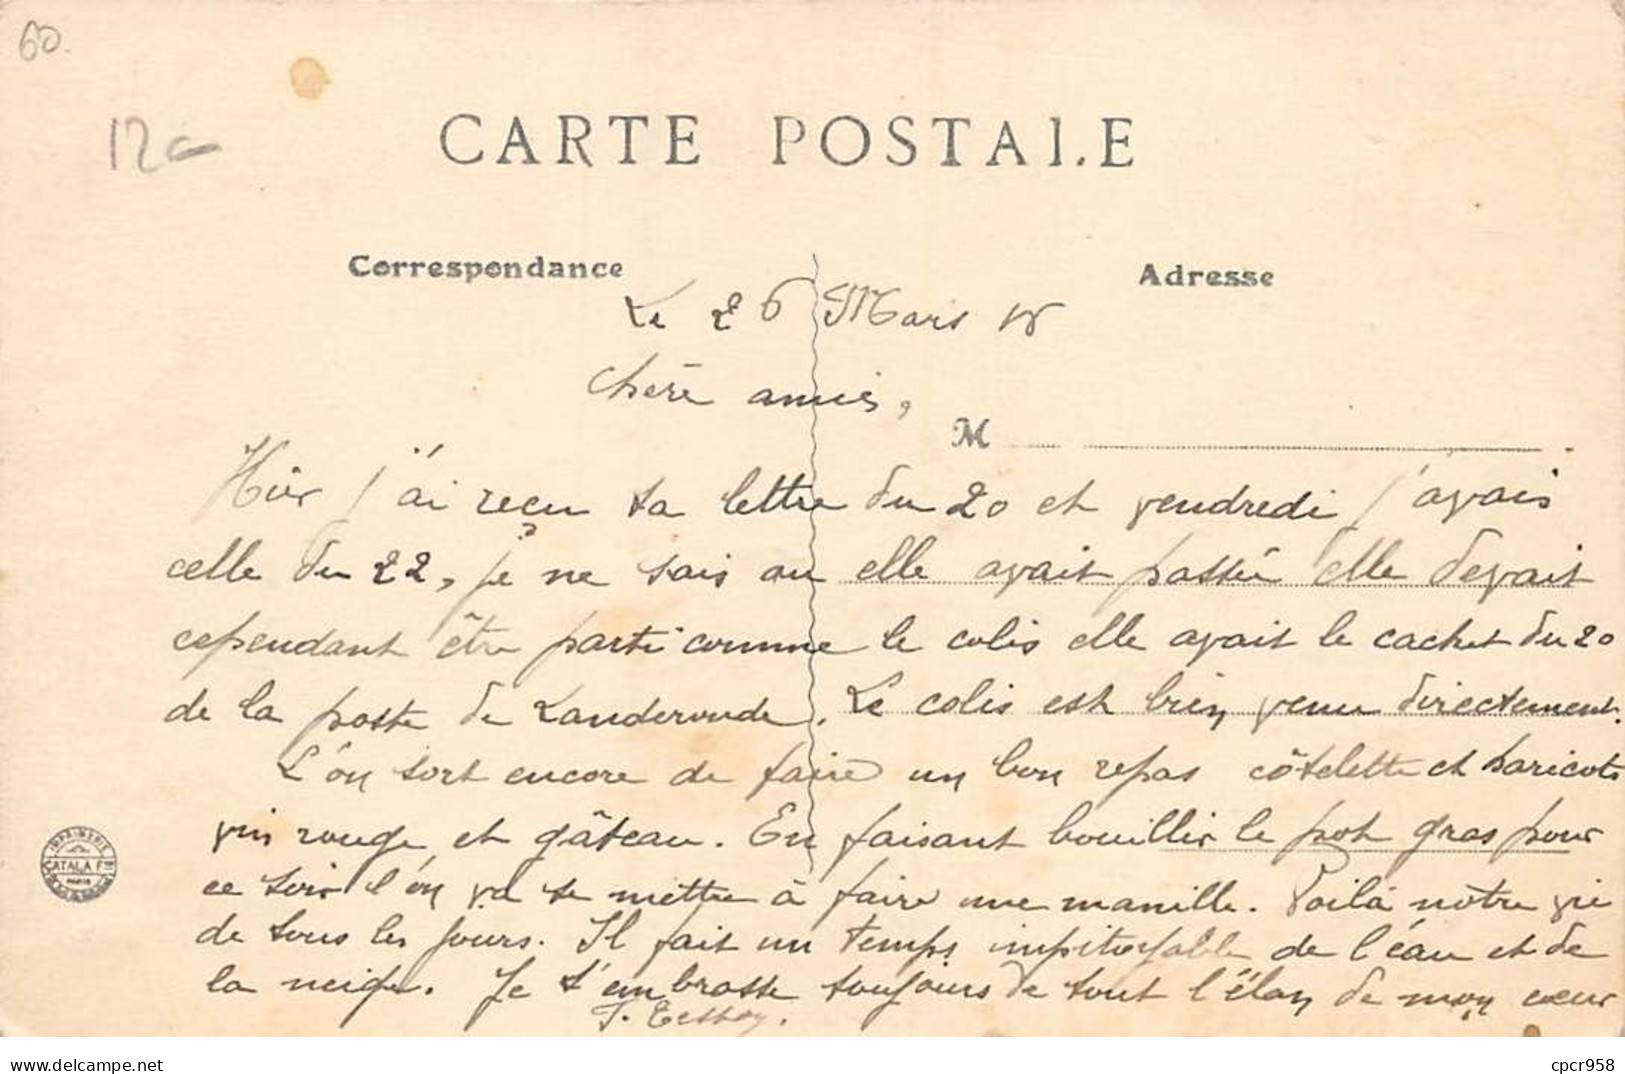 60.
12c
CARTE POSTALE
Correspondance
Adresse
Le 26 Mars 15
Chère amie,
M
Hier j'ai reçu ta lettre du 20 et vendredi j'avais
celle du 22, je ne sais ou elle avait passée elle devait
cependant être parti comme le colis elle avait le cachet du 20
de la poste de Landeronde. Le colis est bien venu directement.
L'on sort encore de faire un bon repas côtelette et haricots
vin rouge et gâteau. En faisant bouillir le pot gras pour
ce soir l'on va se mettre à faire une manille. Voilà notre vie
de tous les jours. Il fait un temps impitoyable de l'éau et de
la neige. Je t'embrasse toujours de tout l'élan de mon cœur
IMPRIMERIE
CATALA Fres
PARIS
delcampe.net
cpcr958